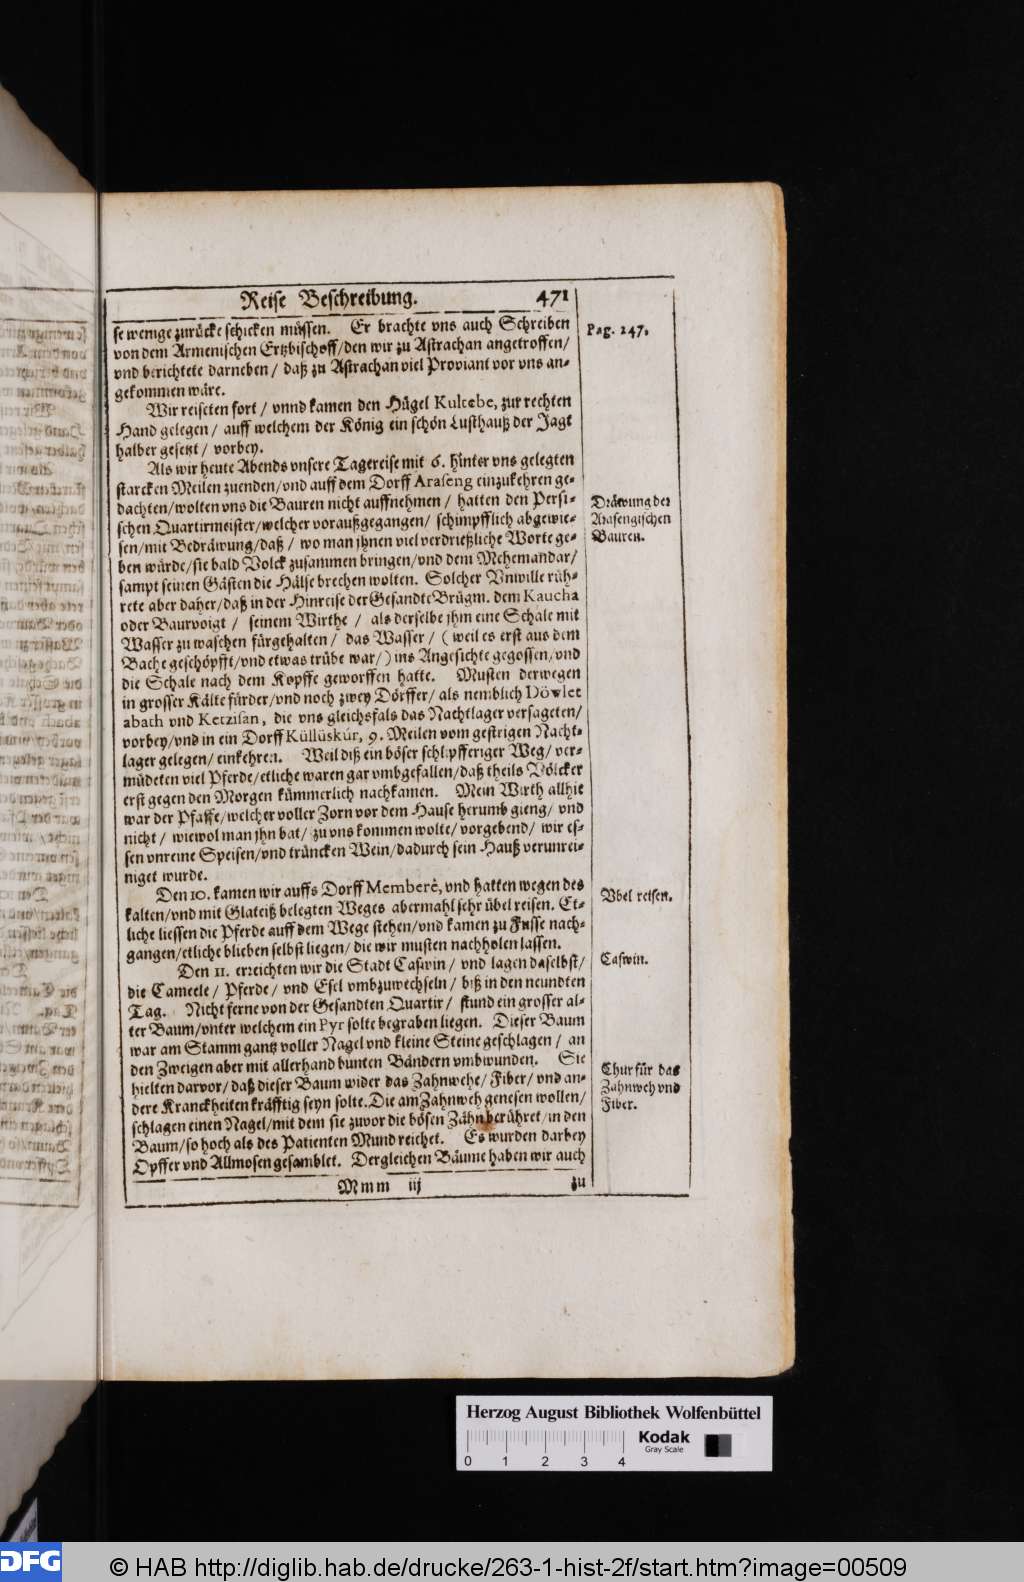 Reise Beschreibung. 471
se wenige zurücke schicken müssen. Er brachte vns auch Schreiben
von dem Armenischen Ertzbischoff/den wir zu Astrachan angetroffen/
vnd berichtete darneben/ daß zu Astrachan viel Proviant vor vns an-
gekommen wäre.
Wir reiseten fort/ vnnd kamen den Hügel Kultebe, zur rechten
Hand gelegen/ auff welchem der König ein schön Lusthauß der Jagt
halber gesetzt/ vorbey.
Als wir heute Abends vnsere Tagereise mit 6. hinter vns gelegten
starcken Meilen zuenden/vnd auff dem Dorff Araseng einzukehren ge-
dachten/wolten vns die Bauren nicht auffnehmen/ hatten den Persi-
schen Quartirmeister/welcher voraußgegangen/ schimpfflich abgewie-
sen/mit Bedräwung/daß/ wo man jhnen viel verdrießliche Worte ge-
ben würde/sie bald Volck zusammen bringen/vnd dem Mehemandar/
sampt seinen Gästen die Hälse brechen wolten. Solcher Vnwille rüh-
rete aber daher/daß in der Hinreise der Gesandte Brügm. dem Kaucha
oder Baurvoigt/ seinem Wirthe/ als derselbe jhm eine Schale mit
Wasser zu waschen fürgehalten/ das Wasser/ (weil es erst aus dem
Bache geschöpfft/vnd etwas trübe war/) ins Angesichte gegossen/vnd
die Schale nach dem Kopffe geworffen hatte. Musten derwegen
in grosser Kälte fürder/vnd noch zwey Dörffer/ als nemblich Döwlet
abath vnd Ketzisan, die vns gleichsfals das Nachtlager versageten/
vorbey/vnd in ein Dorff Küllüskür, 9. Meilen vom gestrigen Nacht-
lager gelegen/ einkehren. Weil diß ein böser schlipfferiger Weg/ ver-
müdeten viel Pferde/etliche waren gar vmbgefallen/daß theils Völcker
erst gegen den Morgen kümmerlich nachkamen. Mein Wirth allhie
war der Pfaffe/welcher voller Zorn vor dem Hause herumb gieng/ vnd
nicht/ wiewol man jhn bat/ zu vns kommen wolte/ vorgebend/ wir es-
sen vnreine Speisen/vnd trüncken Wein/dadurch sein Hauß verunrei-
niget wurde.
Den 10. kamen wir auffs Dorff Memberè, vnd hatten wegen des
kalten/vnd mit Glateiß belegten Weges abermahl sehr übel reisen. Et-
liche liessen die Pferde auff dem Wege stehen/vnd kamen zu Fusse nach-
gangen/etliche blieben selbst liegen/ die wir musten nachholen lassen.
Den 11. erreichten wir die Stadt Caswin/ vnd lagen daselbst/
die Cameele/ Pferde/ vnd Esel vmbzuwechseln/ biß in den neundten
Tag. Nicht ferne von der Gesandten Quartir/ stund ein grosser al-
ter Baum/vnter welchem ein Pyr solte begraben liegen. Dieser Baum
war am Stamm gantz voller Nagel vnd kleine Steine geschlagen/ an
den Zweigen aber mit allerhand bunten Bändern vmbwunden. Sie
hielten darvor/ daß dieser Baum wider das Zahnwehe/ Fiber/ vnd an-
dere Kranckheiten kräfftig seyn solte. Die am Zahnweh genesen wollen/
schlagen einen Nagel/mit dem sie zuvor die bösen Zähn berühret/in den
Baum/so hoch als des Patienten Mund reichet. Es wurden darbey
Opffer vnd Allmosen gesamblet. Dergleichen Bäume haben wir auch
Mmm iij zu
Pag. 247.
Dräwung der
Arasengischen
Bauren.
Vbel reisen.
Caswin.
Chur für das
Zahnweh vnd
Fiber.
Herzog August Bibliothek Wolfenbüttel
Kodak
Gray Scale
0 1 2 3 4
DFG © HAB http://diglib.hab.de/drucke/263-1-hist-2f/start.htm?image=00509